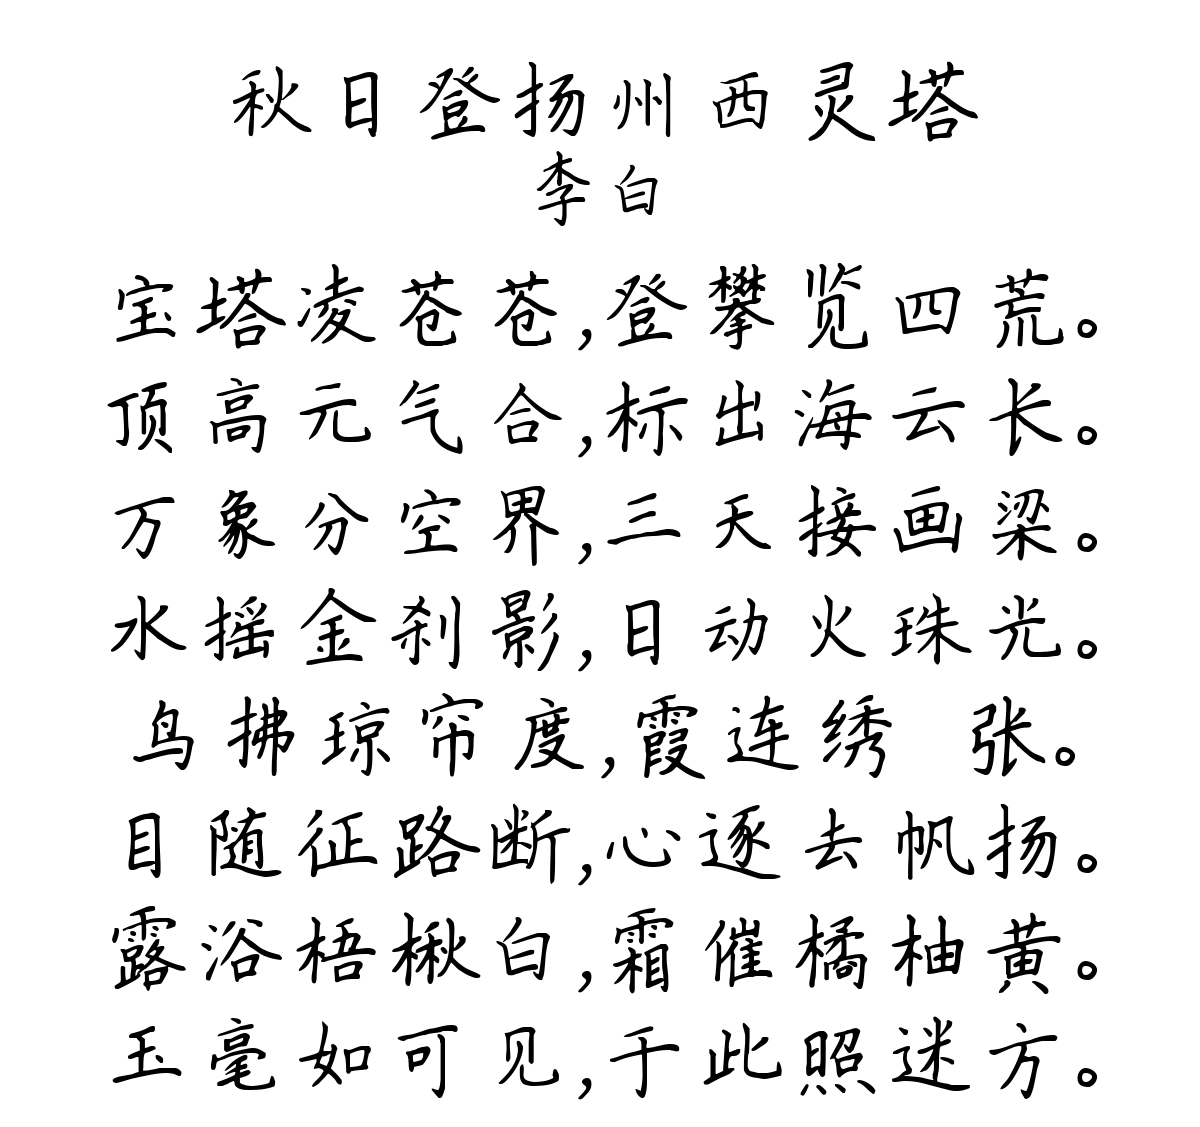 秋日登扬州西灵塔
李白
宝塔凌苍苍,登攀览四荒。
顶高元气合,标出海云长。
万象分空界,三天接画梁。
水摇金刹影,日动火珠光。
鸟拂琼帘度,霞连绣 张。
目随征路断,心逐去帆扬。
露浴梧楸白,霜催橘柚黄。
玉毫如可见,于此照迷方。